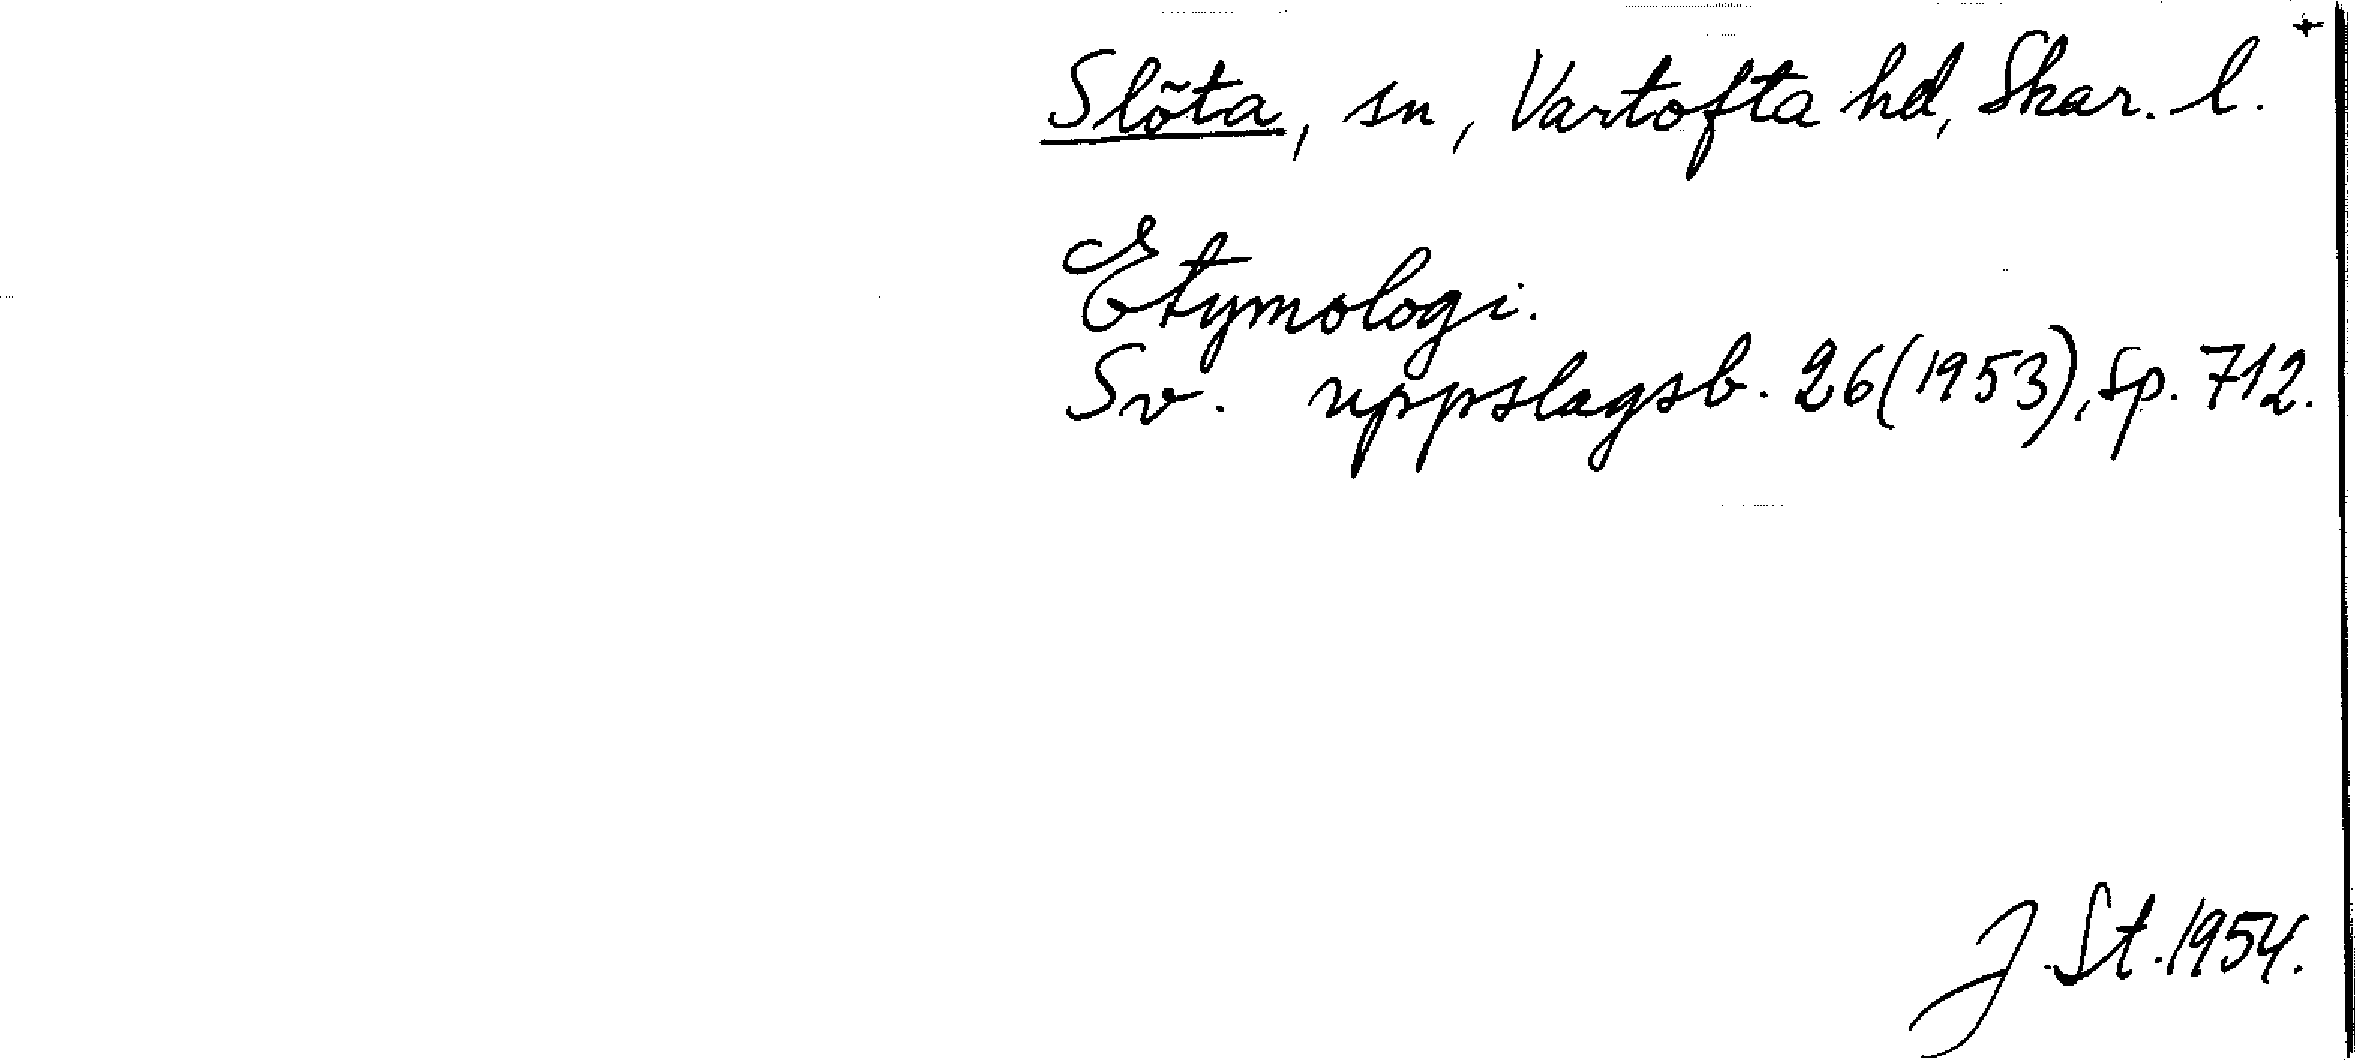 Slöta, sn, Vartofta hd, Skar. l. +
Etymologi.
Sv. uppslagsb. 26(1953), sp. 712.
J. St. 1954.